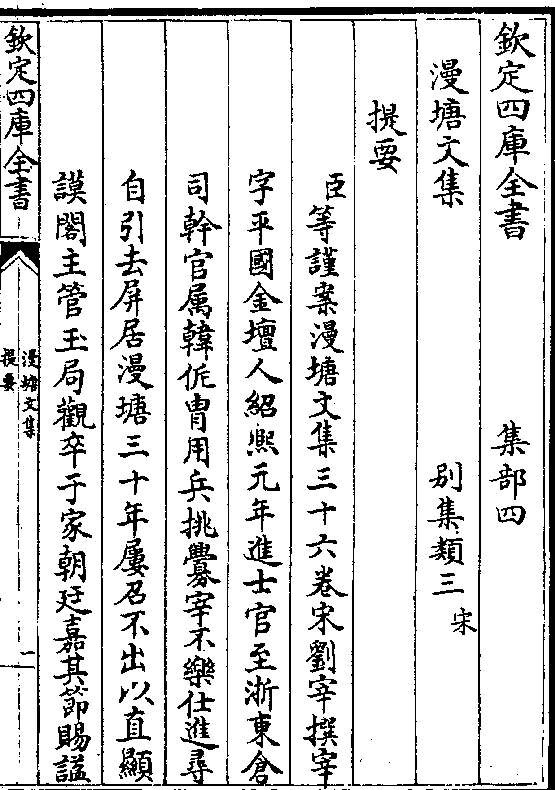 欽定四庫全書　集部四
漫塘文集　別集類三宋
提要
臣等謹案漫塘文集三十六卷宋劉宰撰宰
字平國金壇人紹熙元年進士官至浙東倉
司幹官属韓侂胄用兵挑釁宰不樂仕進尋
自引去屏居漫塘三十年屢召不出以直顯
謨閣主管玉局觀卒于家朝廷嘉其節賜諡
欽定四庫全書
漫塘文集
提要
一